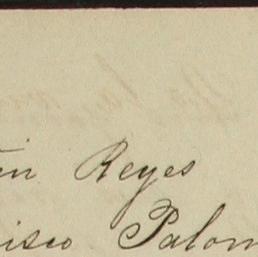 in Reyes
isco Palom